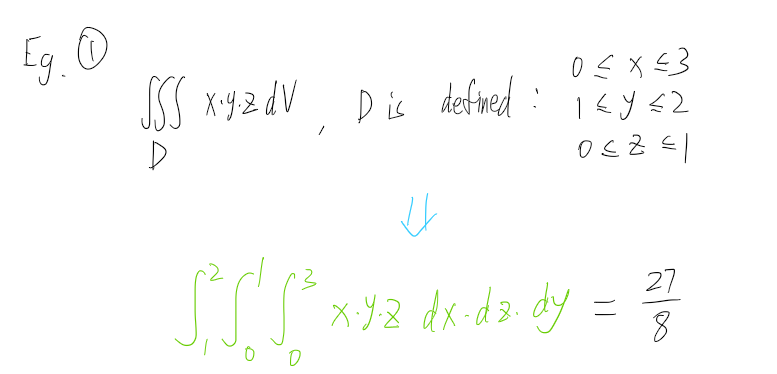 Eg. ①
∭_D x·y·z dV, D is defined: 0 ≤ x ≤ 3
1 ≤ y ≤ 2
0 ≤ z ≤ 1
⇓
∫_1^2 ∫_0^1 ∫_0^3 x·y·z dx·dz·dy = 27/8